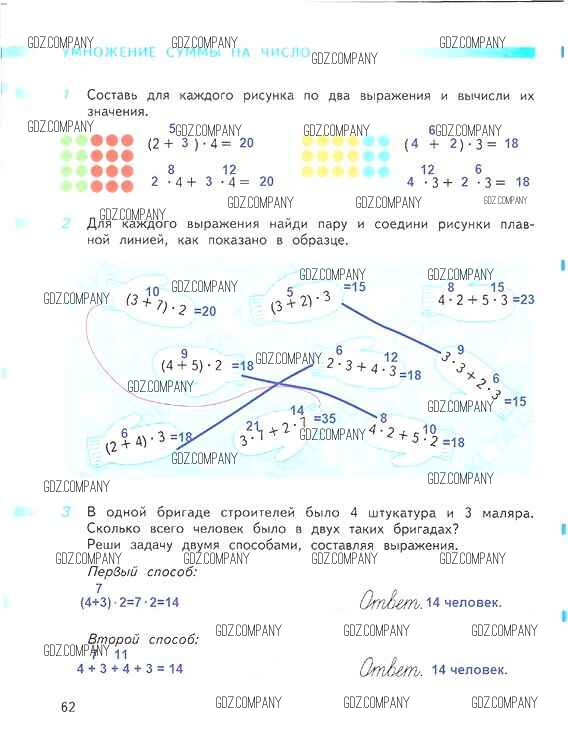 GDZ.COMPANY GDZ.COMPANY GDZ.COMPANY
УМНОЖЕНИЕ СУММЫ НА ЧИСЛО
GDZ.COMPANY
1 Составь для каждого рисунка по два выражения и вычисли их
значения.
GDZ.COMPANY 5 GDZ.COMPANY 6 GDZ.COMPANY
(2 + 3 ) · 4 = 20 (4 + 2 ) · 3 = 18
8 12 12 6
2 · 4 + 3 · 4 = 20 4 · 3 + 2 · 3 = 18
GDZ.COMPANY GDZ.COMPANY GDZ.COMPANY
GDZ.COMPANY
2 Для каждого выражения найди пару и соедини рисунки плав-
ной линией, как показано в образце.
GDZ.COMPANY GDZ.COMPANY
GDZ.COMPANY 10 GDZ.COMPANY 5 =15 8 15
(3 + 7) · 2 =20 (3 + 2) · 3 4 · 2 + 5 · 3 =23
9 GDZ.COMPANY 6 12 9 6
(4 + 5) · 2 =18 2 · 3 + 4 · 3 =18 3 · 3 + 2 · 3 =15
GDZ.COMPANY GDZ.COMPANY
6 21 14 =35 8 10
(2 + 4) · 3 =18 3 · 7 + 2 · 7 GDZ.COMPANY 4 · 2 + 5 · 2 =18
GDZ.COMPANY GDZ.COMPANY
GDZ.COMPANY GDZ.COMPANY
3 В одной бригаде строителей было 4 штукатура и 3 маляра.
Сколько всего человек было в двух таких бригадах?
Реши задачу двумя способами, составляя выражения.
GDZ.COMPANY GDZ.COMPANY GDZ.COMPANY GDZ.COMPANY
Первый способ:
7
(4+3) · 2=7 · 2=14 Ответ. 14 человек.
GDZ.COMPANY GDZ.COMPANY GDZ.COMPANY
Второй способ:
GDZ.COMPANY 7 11
4 + 3 + 4 + 3 = 14 Ответ. 14 человек.
GDZ.COMPANY GDZ.COMPANY
62 GDZ.COMPANY GDZ.COMPANY GDZ.COMPANY